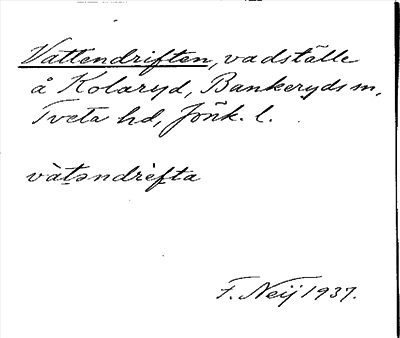 Vattendriften, vadställe
å Kolaryd, Bankeryds m,
Tveta hd, Jönk. l.
vàtəndrèfta
F. Neij 1937.